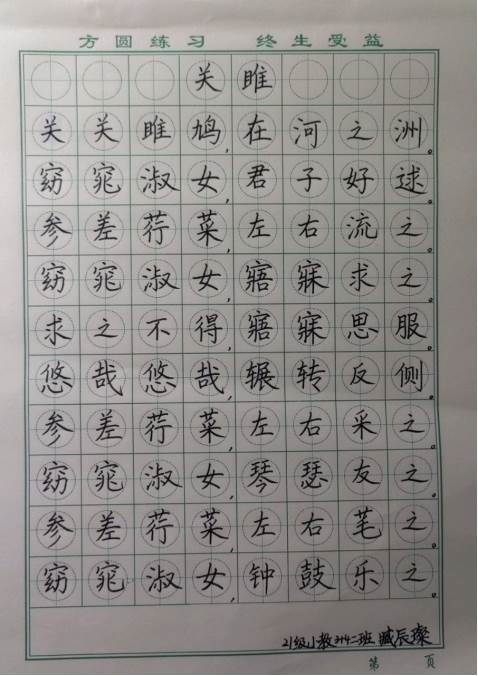 方圆练习 终生受益
关雎
关关雎鸠,在河之洲。
窈窕淑女,君子好逑。
参差荇菜,左右流之。
窈窕淑女,寤寐求之。
求之不得,寤寐思服。
悠哉悠哉,辗转反侧。
参差荇菜,左右采之。
窈窕淑女,琴瑟友之。
参差荇菜,左右芼之。
窈窕淑女,钟鼓乐之。
21级小教3+4二班 臧辰璨
第 页